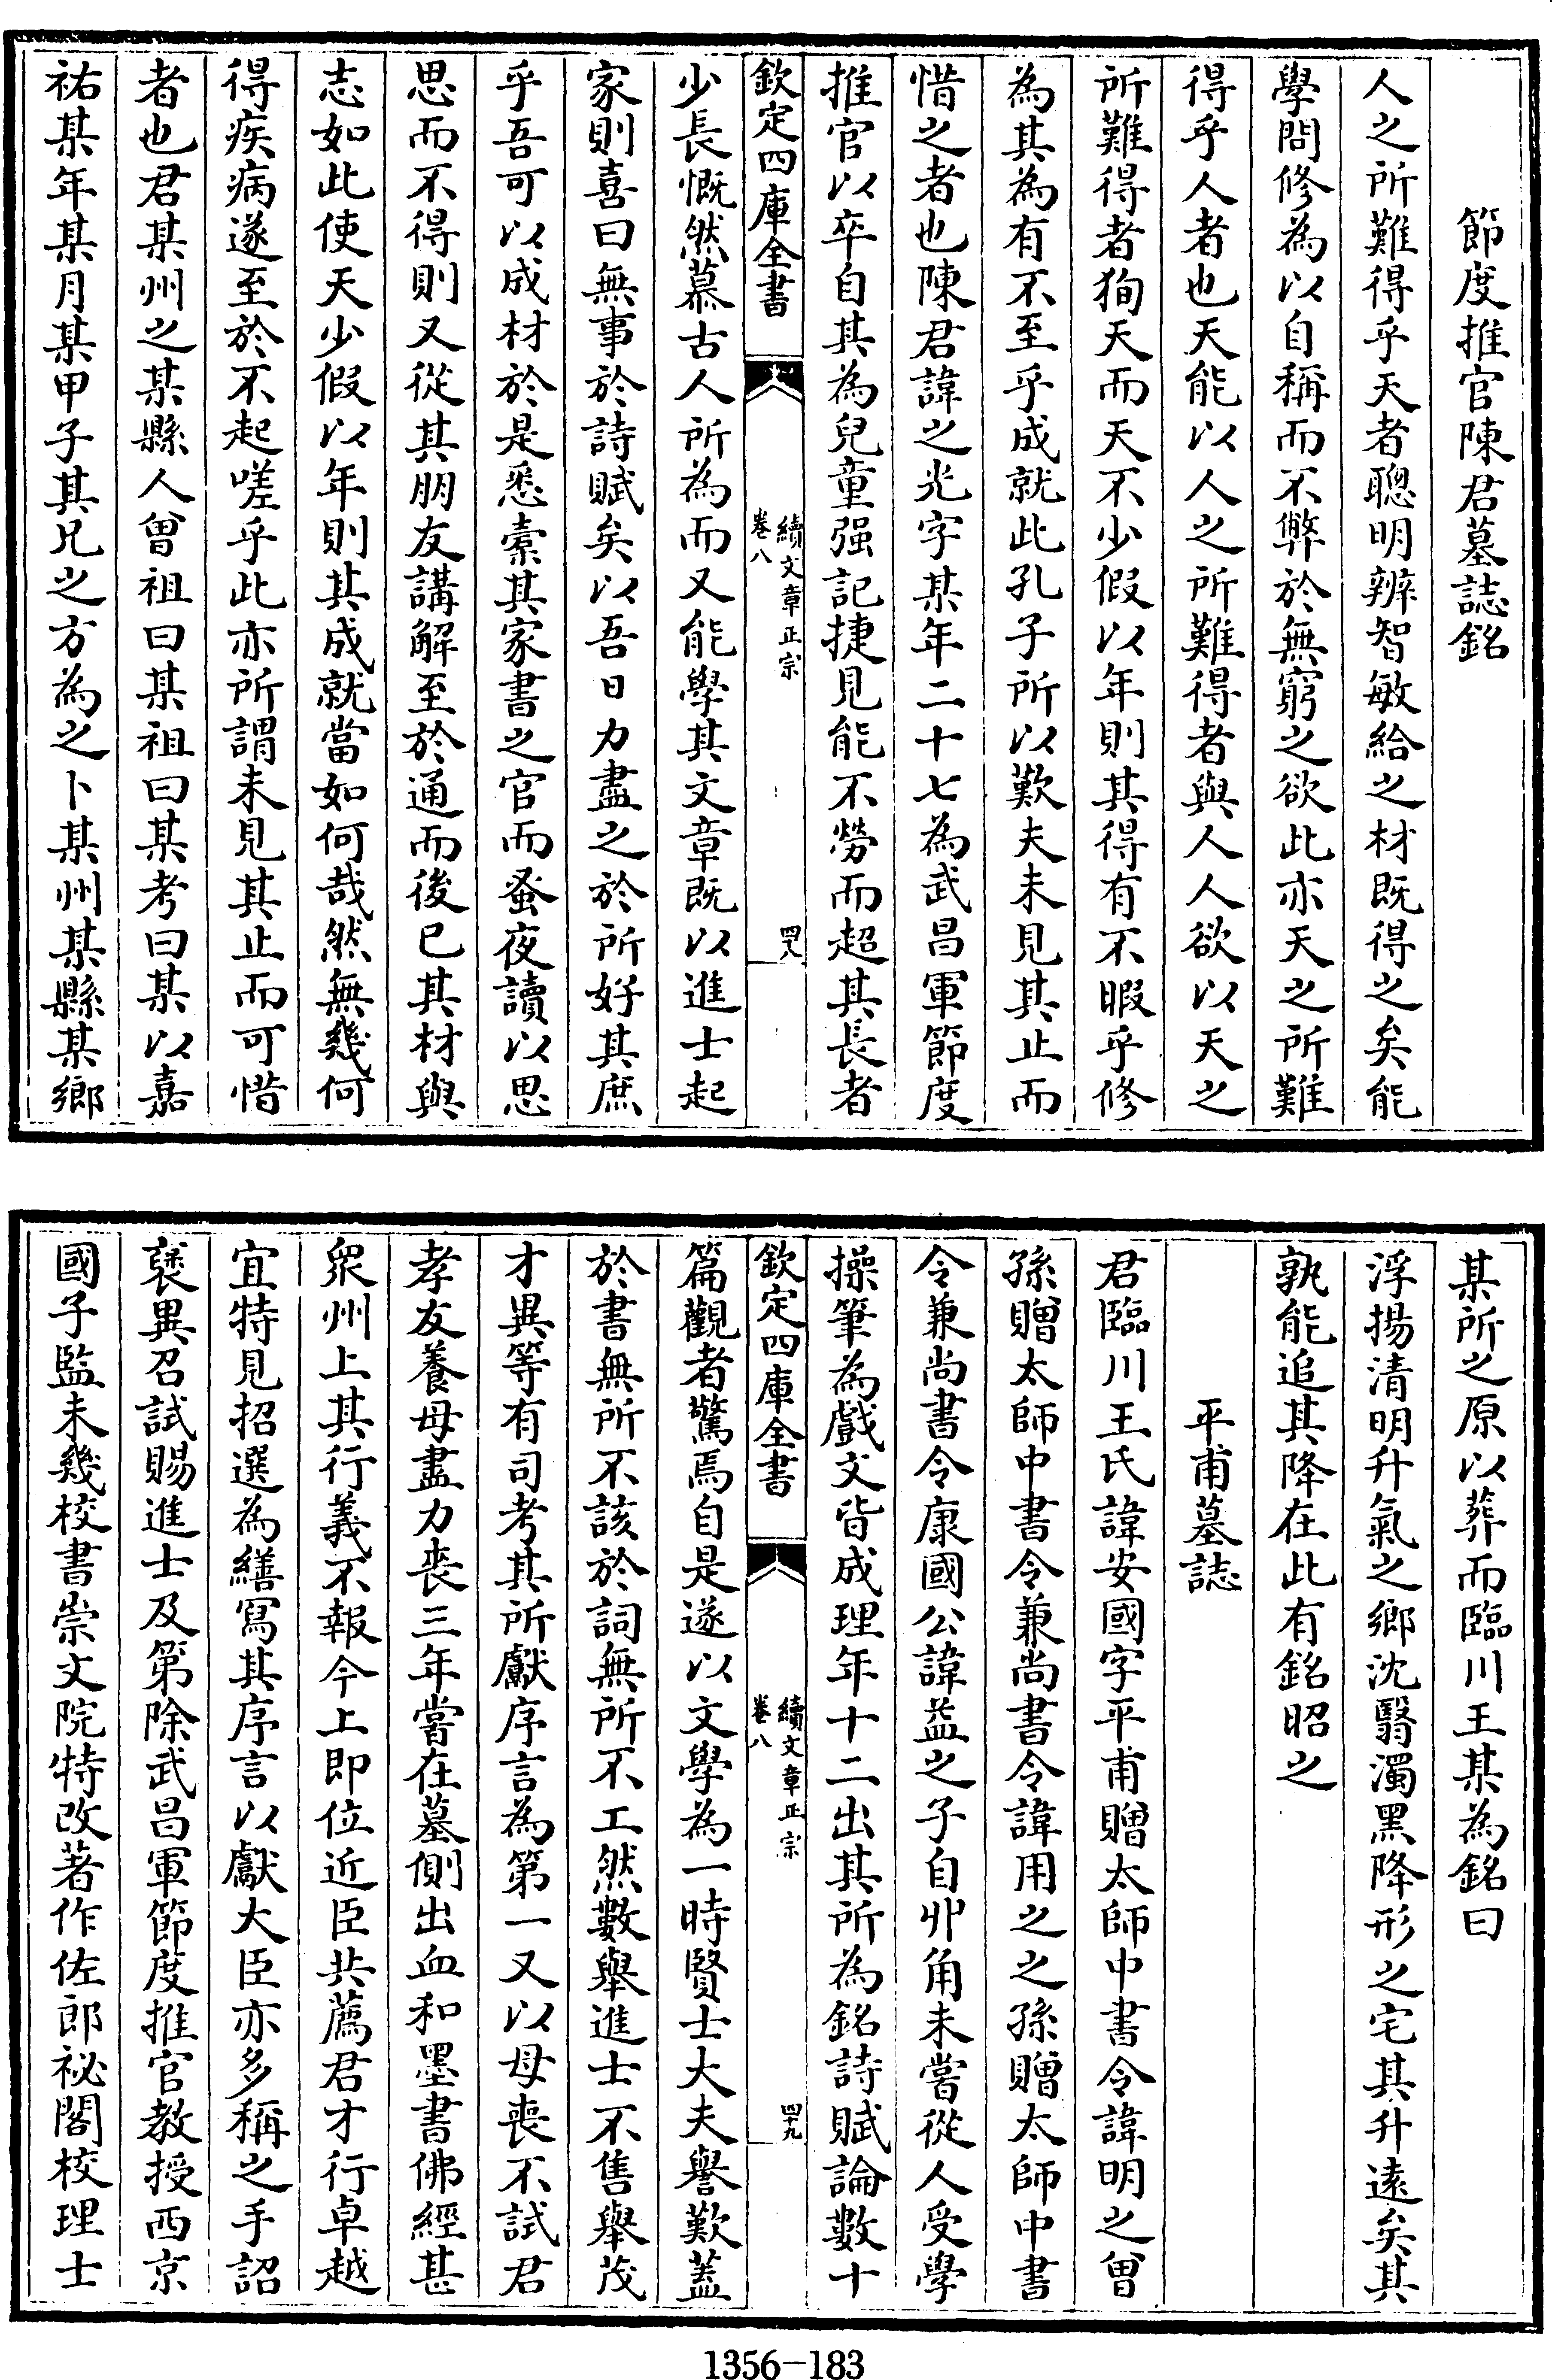 節度推官陳君墓誌銘
人之所難得乎天者聰明辨智敏給之材既得之矣能
學問修為以自稱而不弊於無窮之欲此亦天之所難
得乎人者也天能以人之所難得者與人人欲以天之
所難得者狥天而天不少假以年則其得有不暇乎修
為其為有不至乎成就此孔子所以歎夫未見其止而
惜之者也陳君諱之光字某年二十七為武昌軍節度
推官以卒自其為兒童强記捷見能不勞而超其長者
欽定四庫全書
續文章正宗
卷八
四八
少長慨然慕古人所為而又能學其文章既以進士起
家則喜曰無事於詩賦矣以吾日力盡之於所好其庶
乎吾可以成材於是悉索其家書之官而蚤夜讀以思
思而不得則又從其朋友講解至於通而後已其材與
志如此使天少假以年則其成就當如何哉然無幾何
得疾病遂至於不起嗟乎此亦所謂未見其止而可惜
者也君某州之某縣人曾祖曰某祖曰某考曰某以嘉
祐某年某月某甲子其兄之方為之卜某州某縣某鄉
某所之原以葬而臨川王某為銘曰
浮揚清明升氣之鄉沈翳濁黑降形之宅其升遠矣其
孰能追其降在此有銘昭之
平甫墓誌
君臨川王氏諱安國字平甫贈太師中書令諱明之曾
孫贈太師中書令兼尚書令諱用之之孫贈太師中書
令兼尚書令康國公諱益之子自丱角未嘗從人受學
操筆為戲文皆成理年十二出其所為銘詩賦論數十
欽定四庫全書
續文章正宗
卷八
四十九
篇觀者驚焉自是遂以文學為一時賢士大夫譽歎蓋
於書無所不該於詞無所不工然數舉進士不售舉茂
才異等有司考其所獻序言為第一又以母喪不試君
孝友養母盡力喪三年嘗在墓側出血和墨書佛經甚
衆州上其行義不報今上即位近臣共薦君才行卓越
宜特見招選為繕寫其序言以獻大臣亦多稱之手詔
褒異召試賜進士及第除武昌軍節度推官教授西京
國子監未幾校書崇文院特改著作佐郎祕閣校理士
1356—183